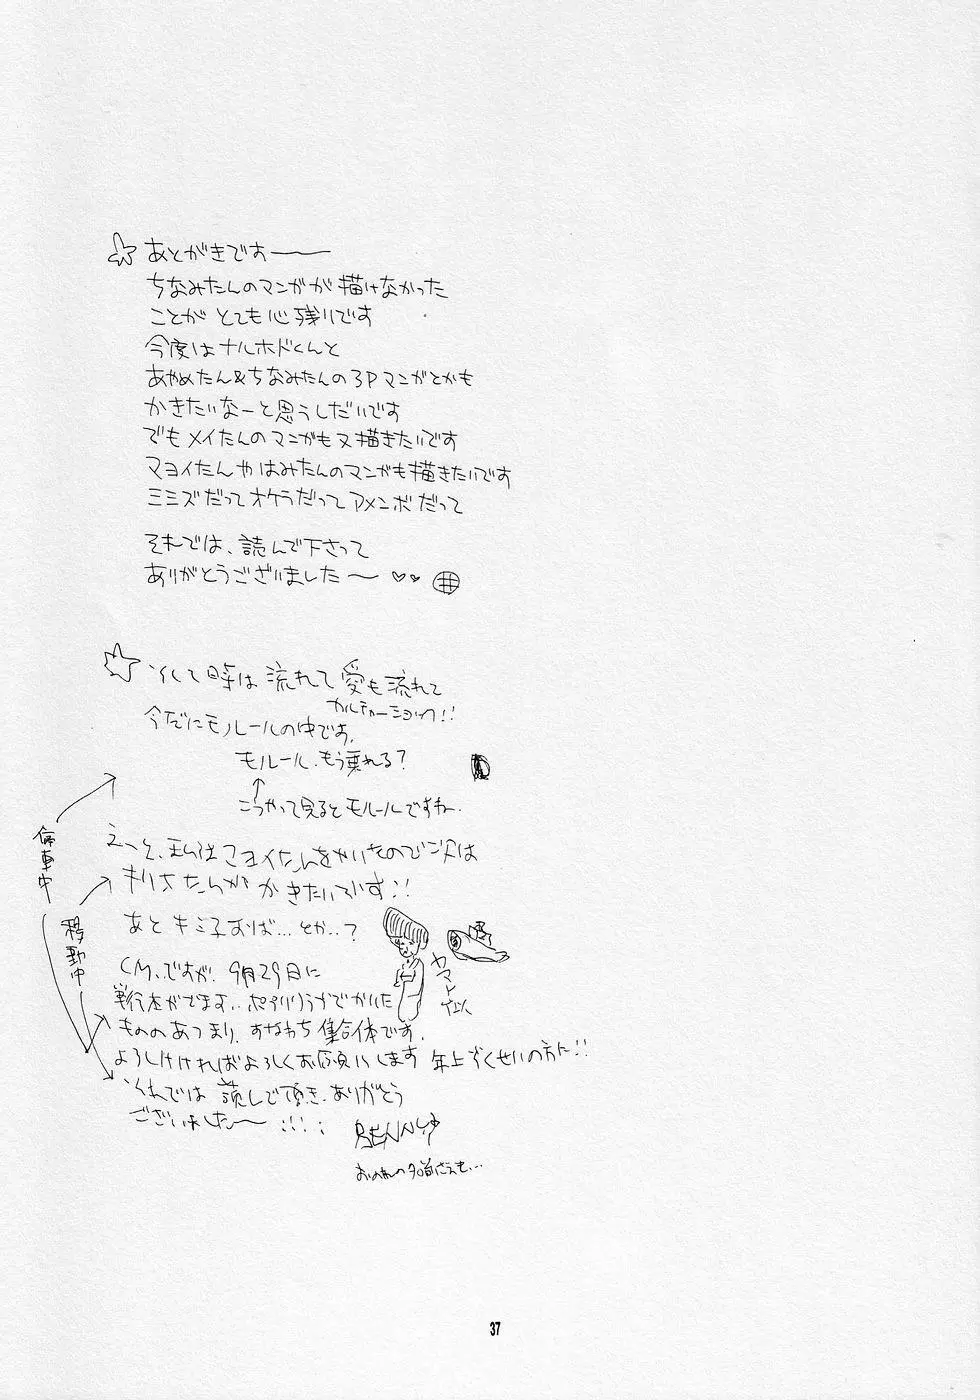 あとがきですーー
ちなみたんのマンガが描けなかった
ことがとても心残りです
今度はナルホドくんと
あやめたん&ちなみたんの3Pマンガとかも
かきたいなーと思うしだいです
でもメイたんのマンガも又描きたいです
マヨイたんやはみたんのマンガも描きたいです
ミミズだってオケラだってアメンボだって
それでは、読んで下さって
ありがとうございました〜 ♡♡ 井
そして時は流れて愛も流れて
カルチャーショック!!
今だにモノルールの中です。
モルール、もう乗れる?
↑
こうやって見るとモルールですねー
停車中
えっと、私はマヨイたんをかいたので次は
キリオたんがかきたいです!!
移動中
あとキミ子おば…とか…?
ヤマト
CM、ですが、9月29日に
単行本がでます。
でかいた
もののあつまり、すなわち集合体です。
よろしければよろしくお願いします 年上ずくせいの方に!!
それでは 読んで頂き、ありがとう
ございました〜 :::
BENNY
おのれの名前さえも…
37